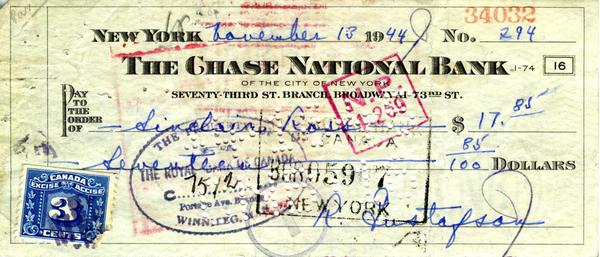 34032
NEW YORK November 13 1944 No. 294
THE CHASE NATIONAL BANK 1-74 16
OF THE CITY OF NEW YORK
SEVENTY-THIRD ST. BRANCH, BROADWAY AT 73RD ST.
N.P.
1-259
PAY TO THE ORDER OF Sinclair Ross $ 17.85
Seventeen 85/100 DOLLARS
THE ROYAL BANK OF CANADA
1512
Portage Ave.
WINNIPEG, MAN.
5 959 7
NEW YORK
R. Gustafson
CANADA
EXCISE ACCISE
3
CENTS